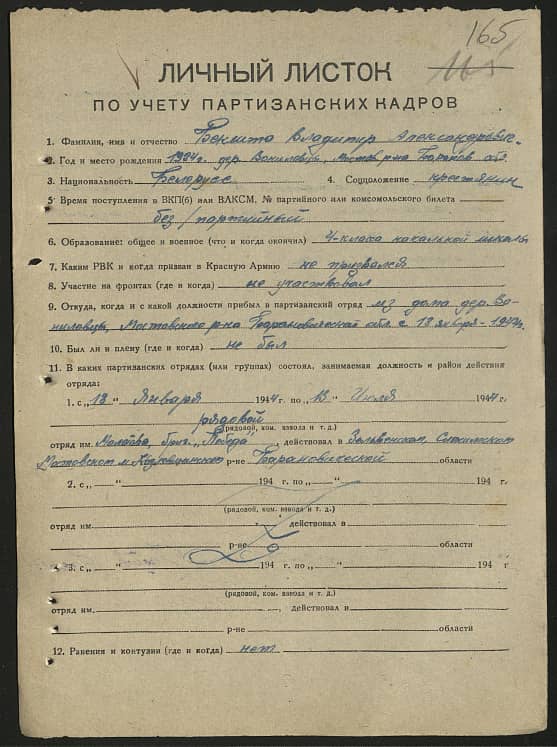 165
ЛИЧНЫЙ ЛИСТОК
ПО УЧЕТУ ПАРТИЗАНСКИХ КАДРОВ
1. Фамилия, имя и отчество Владимир Александрович
2. Год и место рождения дер. Мостов. р-на Баранов. обл.
3. Национальность Белорусс 4. Соцположение крестянин
5. Время поступления в ВКП(б) или ВЛКСМ, № партийного или комсомольского билета
без/партийный
6. Образование: общее и военное (что и когда окончил) 4-класса начальной школы
7. Каким РВК и когда призван в Красную Армию не призвался
8. Участие на фронтах (где и когда) не участвовал
9. Откуда, когда и с какой должности прибыл в партизанский отряд из дома дер.
Мостовского р-на Барановической обл. с 18 января-
10. Был ли в плену (где и когда) не был
11. В каких партизанских отрядах (или группах) состоял, занимаемая должность и район действия
отряда:
1. с „18" Января 1944 г. по „ " Июля 1944 г.
рядовой
(рядовой, ком. взвода и т. д.)
отряд им. бриг. "Победа", действовал в Зельвенском, Слонимском
Мостовском и Козловщинском р-не Барановической области
2. с „ " 194 г. по „ " 194 г.
(рядовой, ком. взвода и т. д.)
отряд им. , действовал в
р-не области
3. с „ " 194 г. по „ " 194 г.
(рядовой, ком. взвода и т. д.)
отряд им. , действовал в
р-не области
12. Ранения и контузии (где и когда) нет